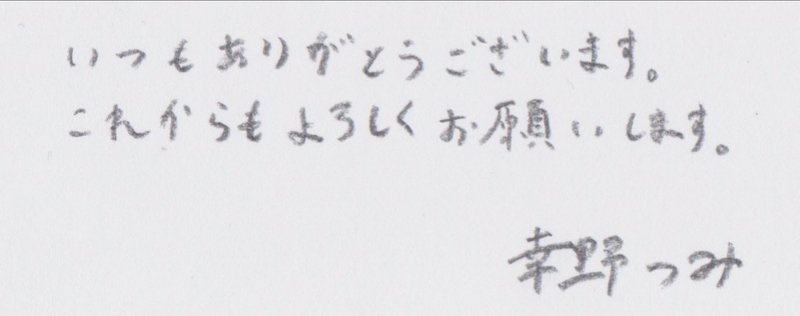 いつもありがとうございます。
これからもよろしくお願いします。
幸野つみ